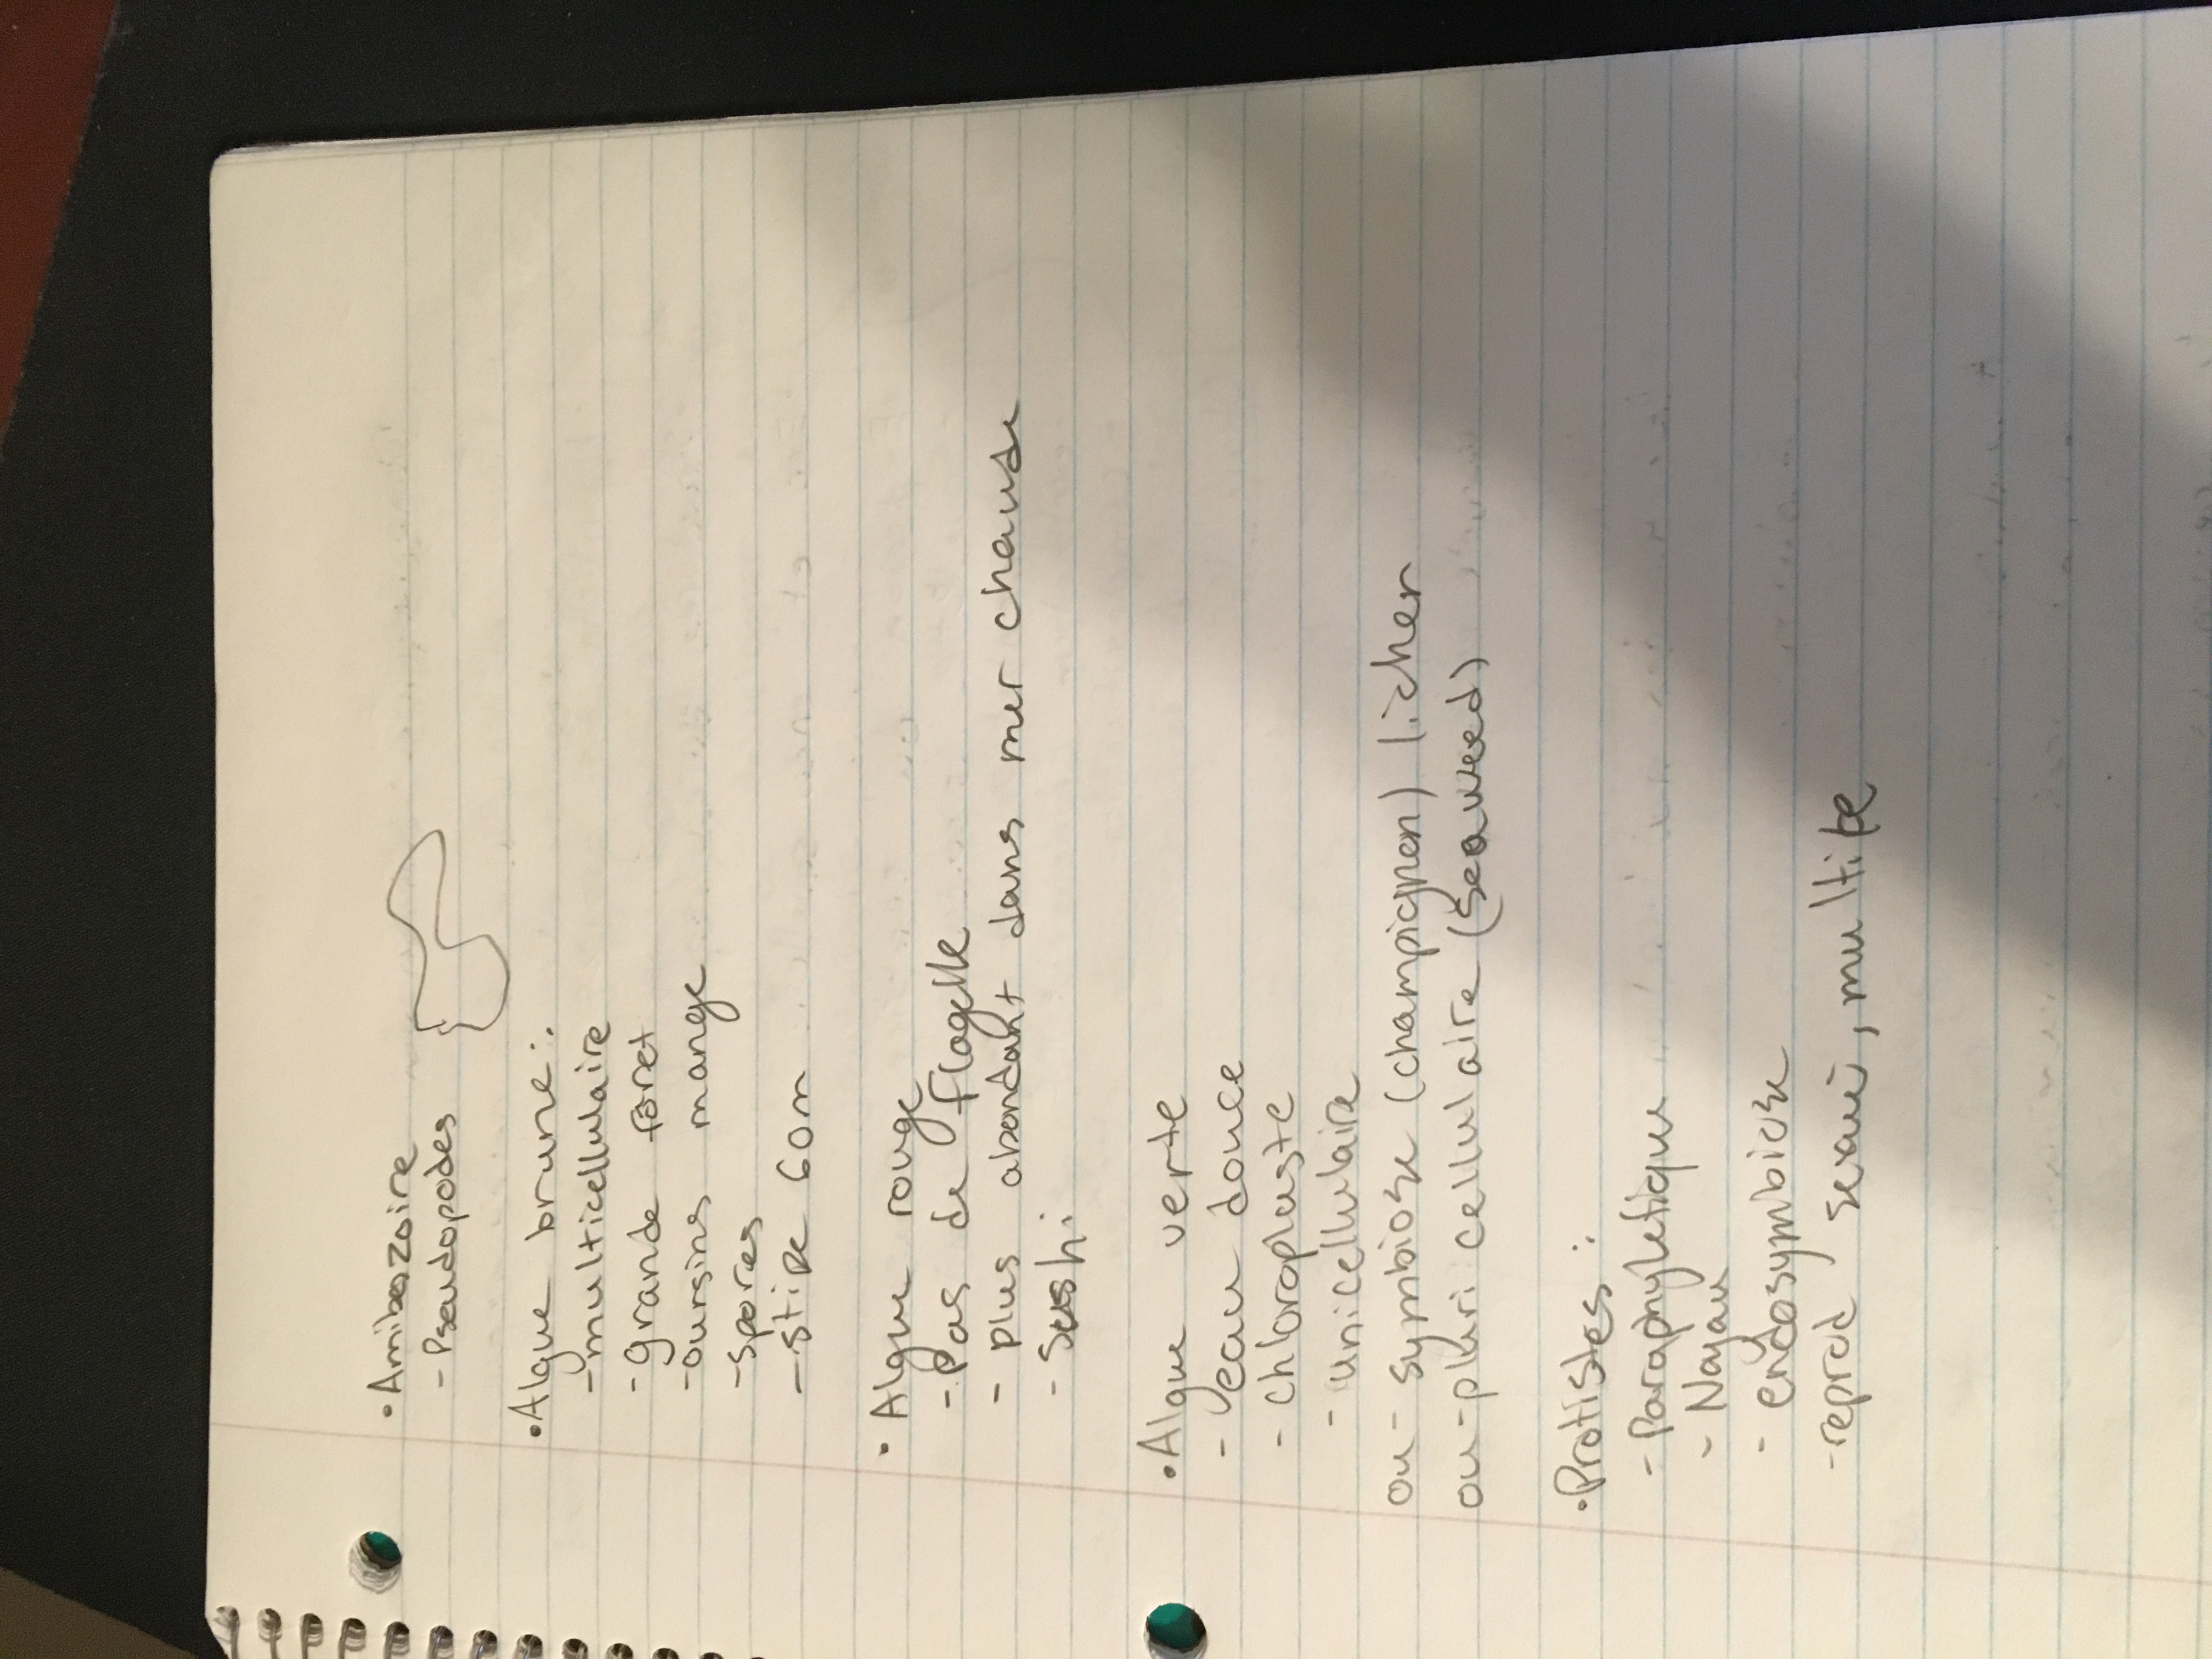 • Amibozoire
- Pseudopodes
• Algue brune :
- multicellulaire
- grande foret
- oursins mange
- spores
- stipe 60m
• Algue rouge
- Pas de flagelle
- plus abondant dans mer chaude
- sushi
• Algue verte
- eau douce
- chloroplaste
- unicellulaire
ou - symbiose (champignon) lichen
ou - pluri cellulaire (seaweed)
• Protistes :
- Paraphyletique
- Noyau
- endosymbiose
- reprod sexué, multiple